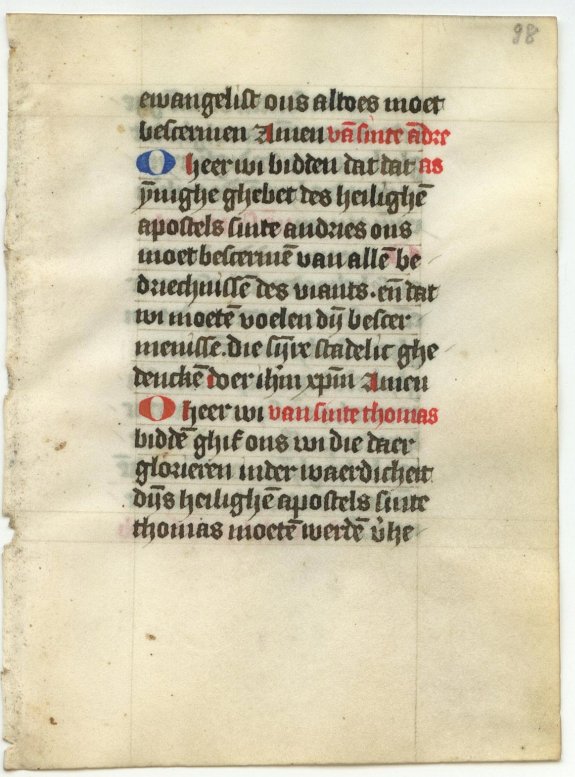 98
ewangelist ons altoes moet
bescermen Amen vā sinte ādre
O heer wi bidden dat dat as
ȳnighe ghebet des heilighē
apostels sinte andries ons
moet bescermē van allē be
driechnissē des viants. eñ dat
wi moetē voelen dȳ bescer
menisse. die sijre stadelic ghe
denckē doer ihm̄ xpm̄ Amen
O heer wi van sinte thomas
biddē ghif ons wi die daer
glorieren inder waerdicheit
dijns heilighē apostels sinte
thomas moetē werdē v̄he